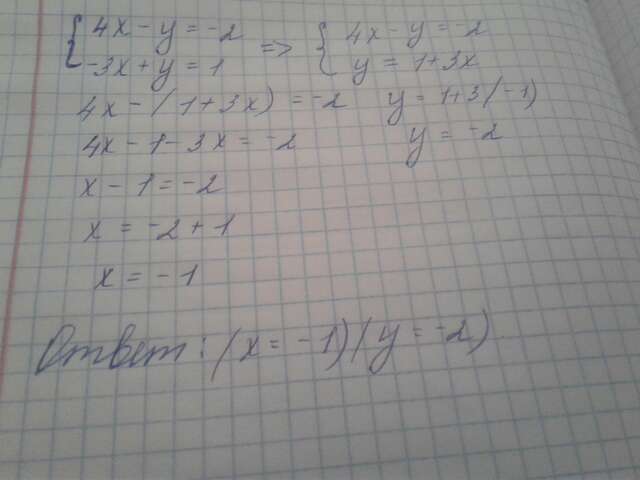 { 4x - y = -2 => { 4x - y = -2
-3x + y = 1 y = 1+3x
4x - (1+3x) = -2 y = 1+3(-1)
4x - 1 - 3x = -2 y = -2
x - 1 = -2
x = -2 + 1
x = -1
Ответ: (x = -1) (y = -2)